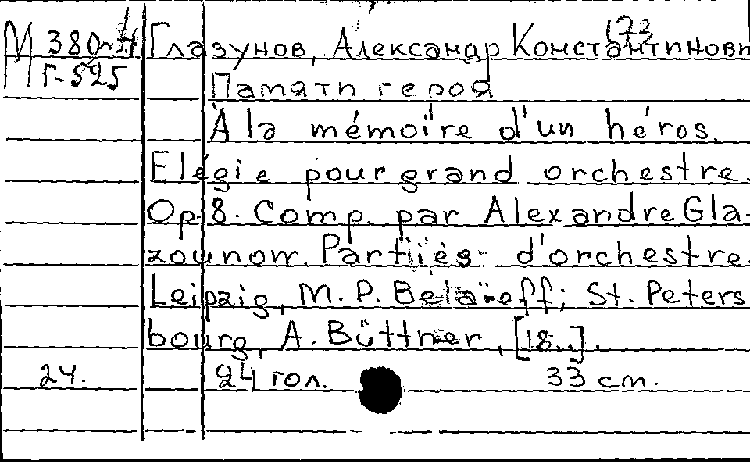 173
М 380-4 Глазунов, Александр Константинови
Г-525
Памяти героя
À la mémoire d'un héros.
Elégie pour grand orchestre.
Op. 8. Comp. par Alexandre Gla-
zounow. Parties d'orchestre.
Leipzig, M. P. Belaïeff; St. Peters
bourg, A. Büttner, [18..].
24. 24 гол. 33 cm.